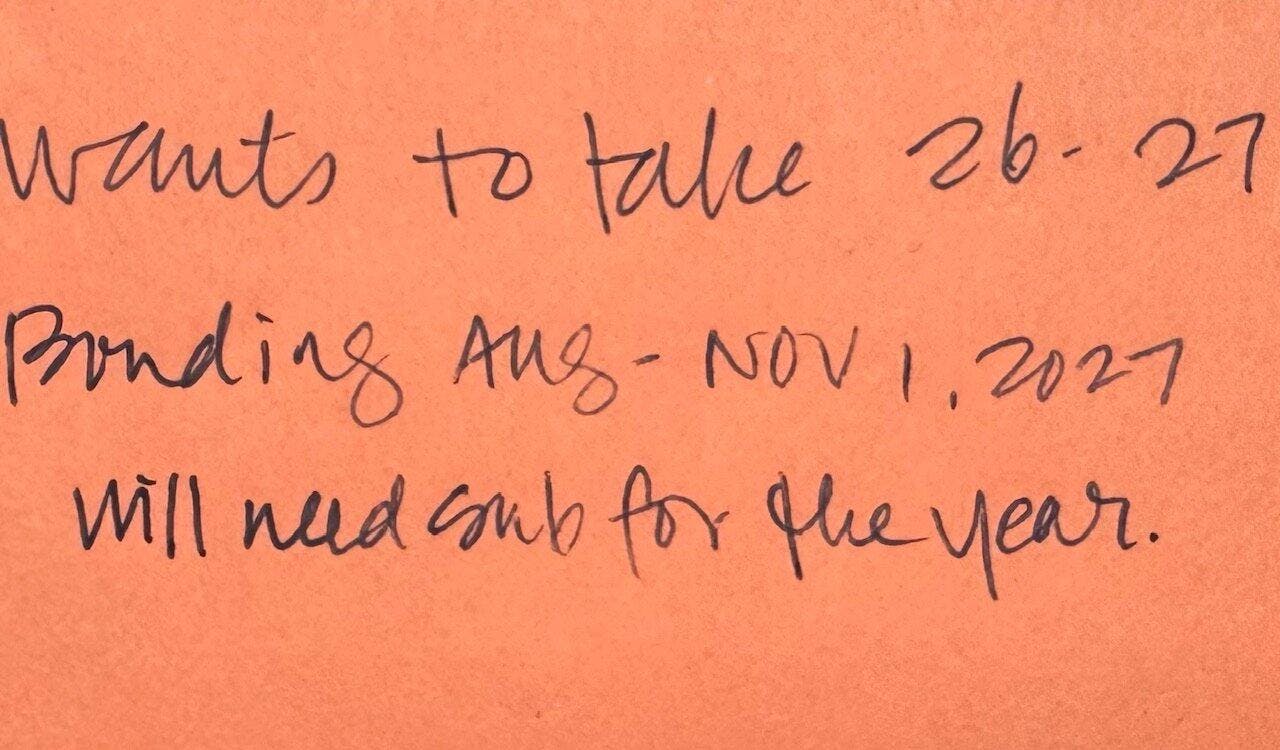 Wants to take 26-27
Bonding Aug - Nov 1, 2027
Will need sub for the year.